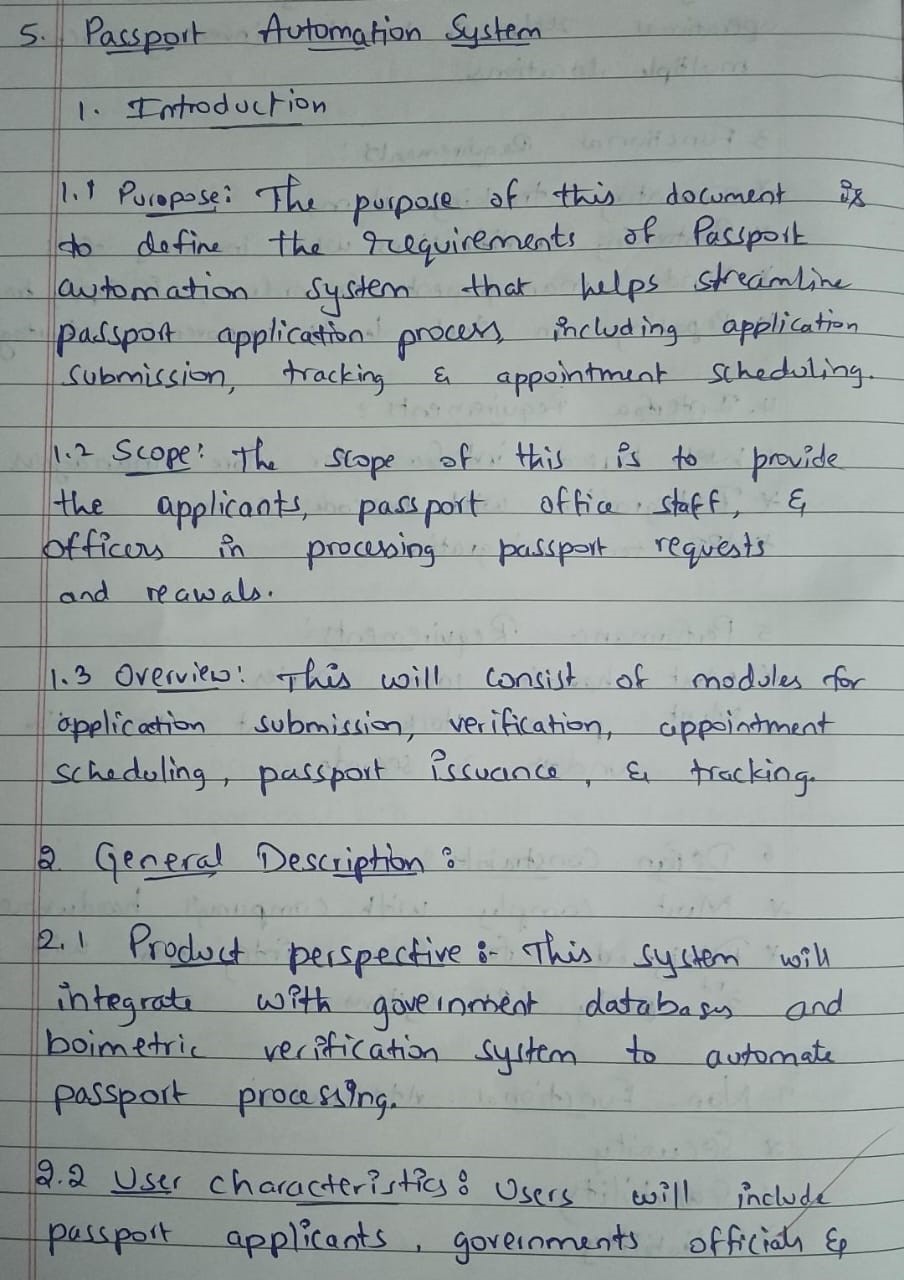 5. Passport Automation System
1. Introduction
1.1 Puropose: The purpose of this document is
to define the requirements of Passport
automation system that helps streamline
passport application process, including application
submission, tracking & appointment scheduling.
1.2 Scope: The scope of this is to provide
the applicants, passport office staff, &
officers in processing passport requests
and reawals.
1.3 Overview: This will consist of modules for
application submission, verification, appointment
scheduling, passport issuance, & tracking.
2 General Description:
2.1 Product perspective:- This system will
integrate with government databases and
boimetric verification system to automate
passport processing.
2.2 User characteristics: Users will include
passport applicants, governments officials &